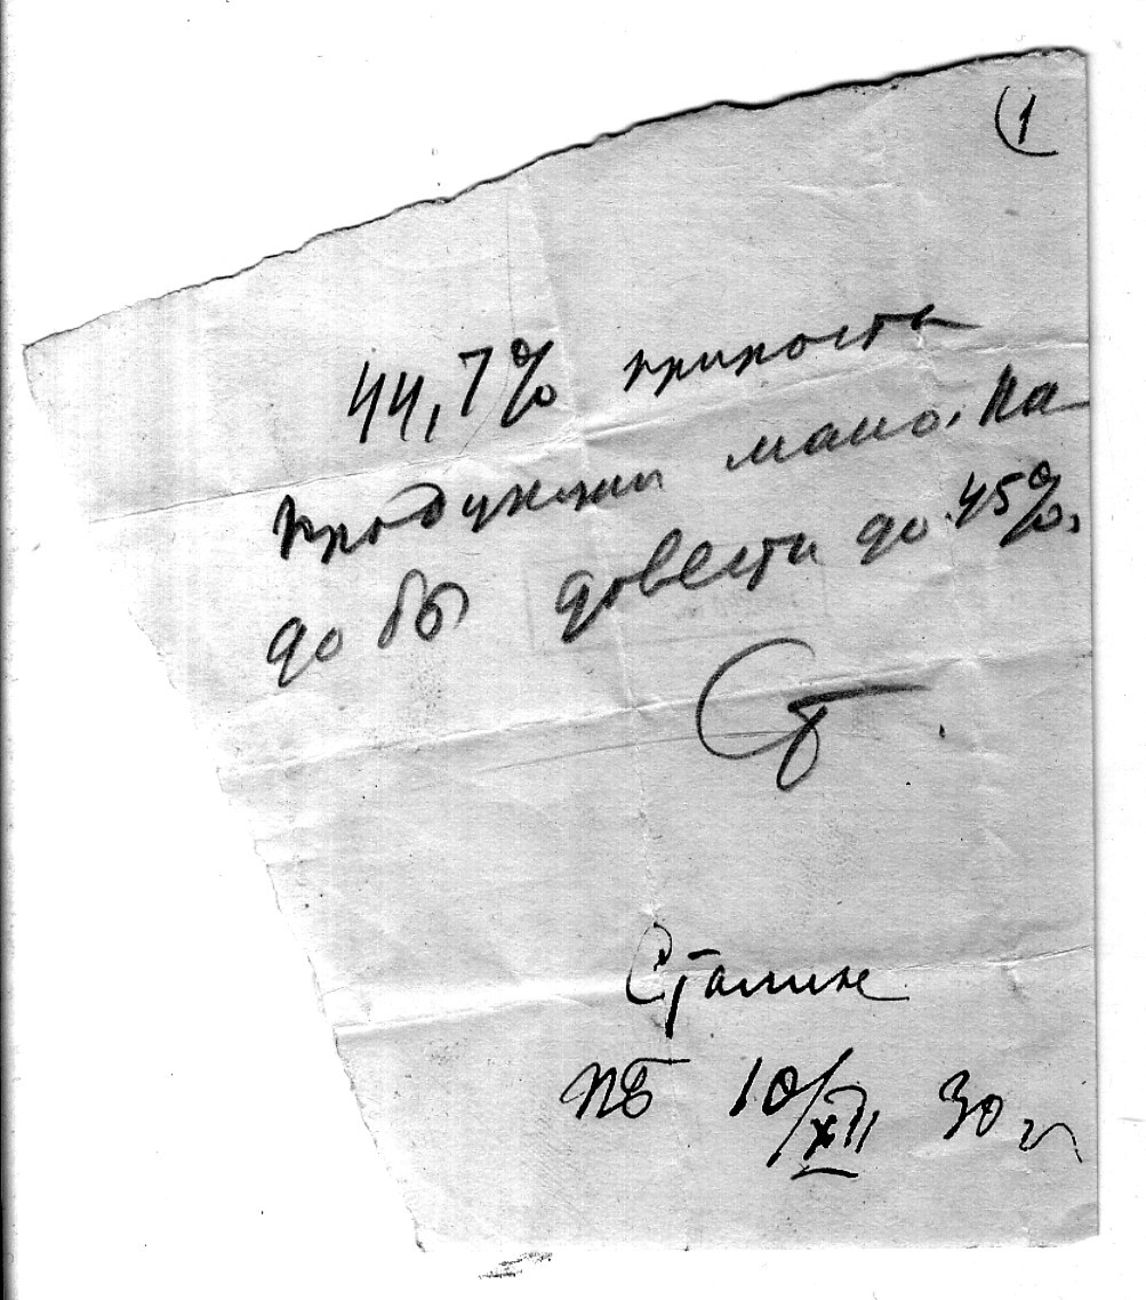 1
44,7% прироста
продукции мало. На-
до бы довести до 45%.
Ст.
Сталин
ПБ 10/XII 30 г